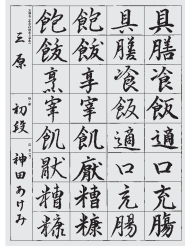 具膳飡飯適口充腸
具膳飡飯適口充腸
飽飫享宰飢厭糟糠
飽飫烹宰飢厭糟糠
三原 初段 神田あけみ